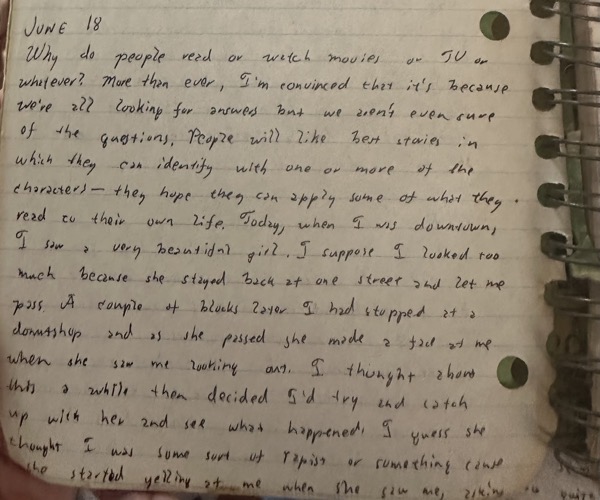 JUNE 18
Why do people read or watch movies or TV or
whatever? More than ever, I'm convinced that it's because
we're all looking for answers but we aren't even sure
of the questions. People will like best stories in
which they can identify with one or more of the
characters — they hope they can apply some of what they
read to their own life. Today, when I was downtown,
I saw a very beautiful girl. I suppose I looked too
much because she stayed back at one street and let me
pass. A couple of blocks later I had stopped at a
donutshop and as she passed she made a face at me
when she saw me looking out. I thought about
this a while then decided I'd try and catch
up with her and see what happened. I guess she
thought I was some sort of rapist or something cause
she started yelling at me when she saw me, asking